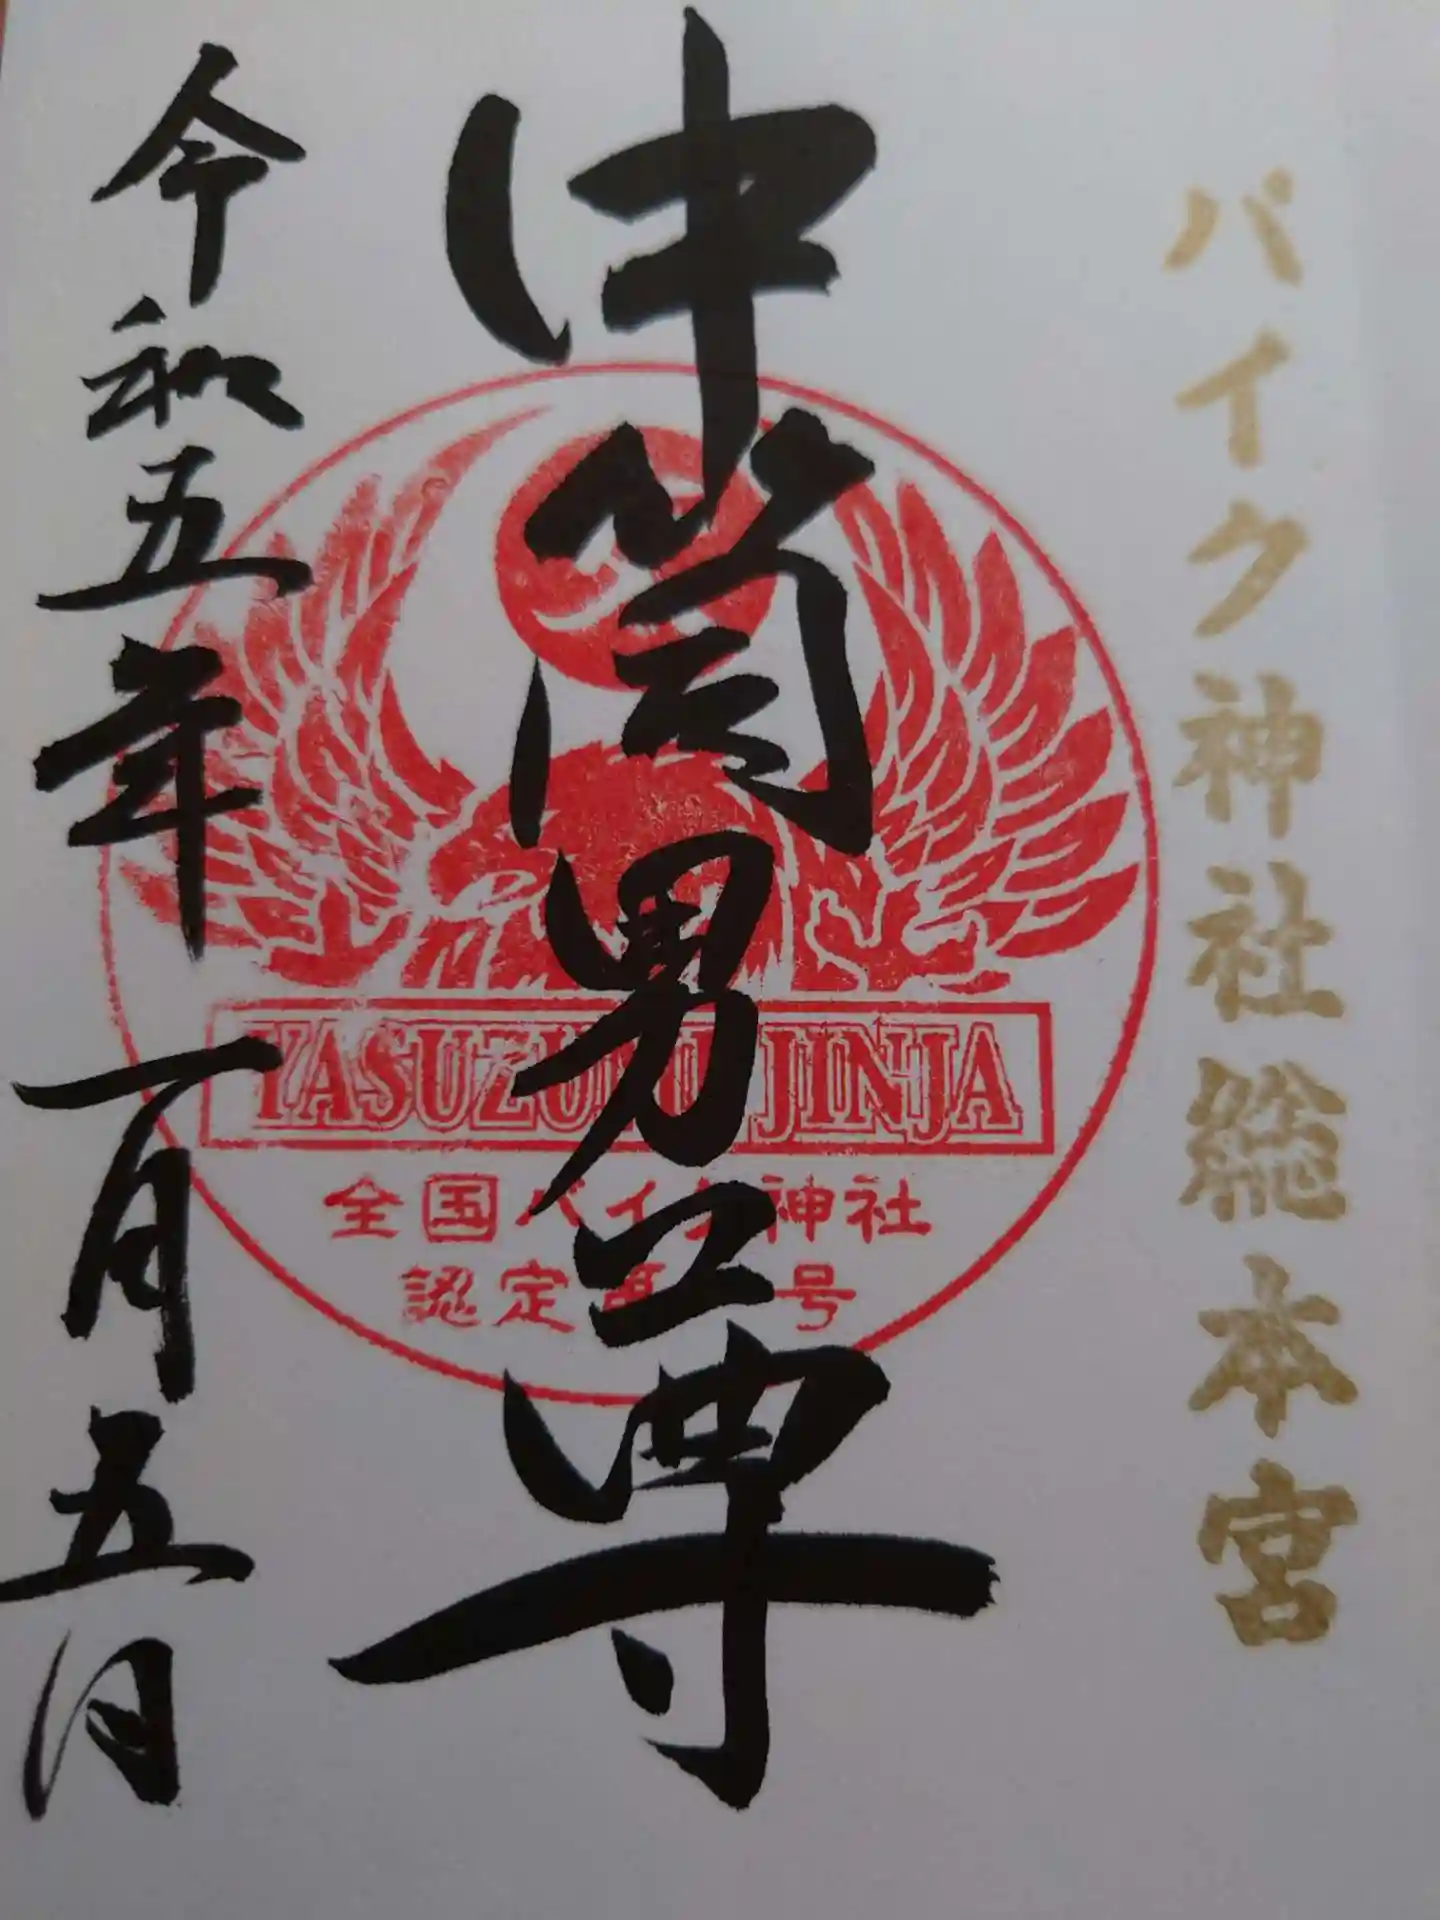 バイク神社総本宮
中筒男之尊
令和五年一月五日
YASUZUMI JINJA
全国バイク神社
認定第 号